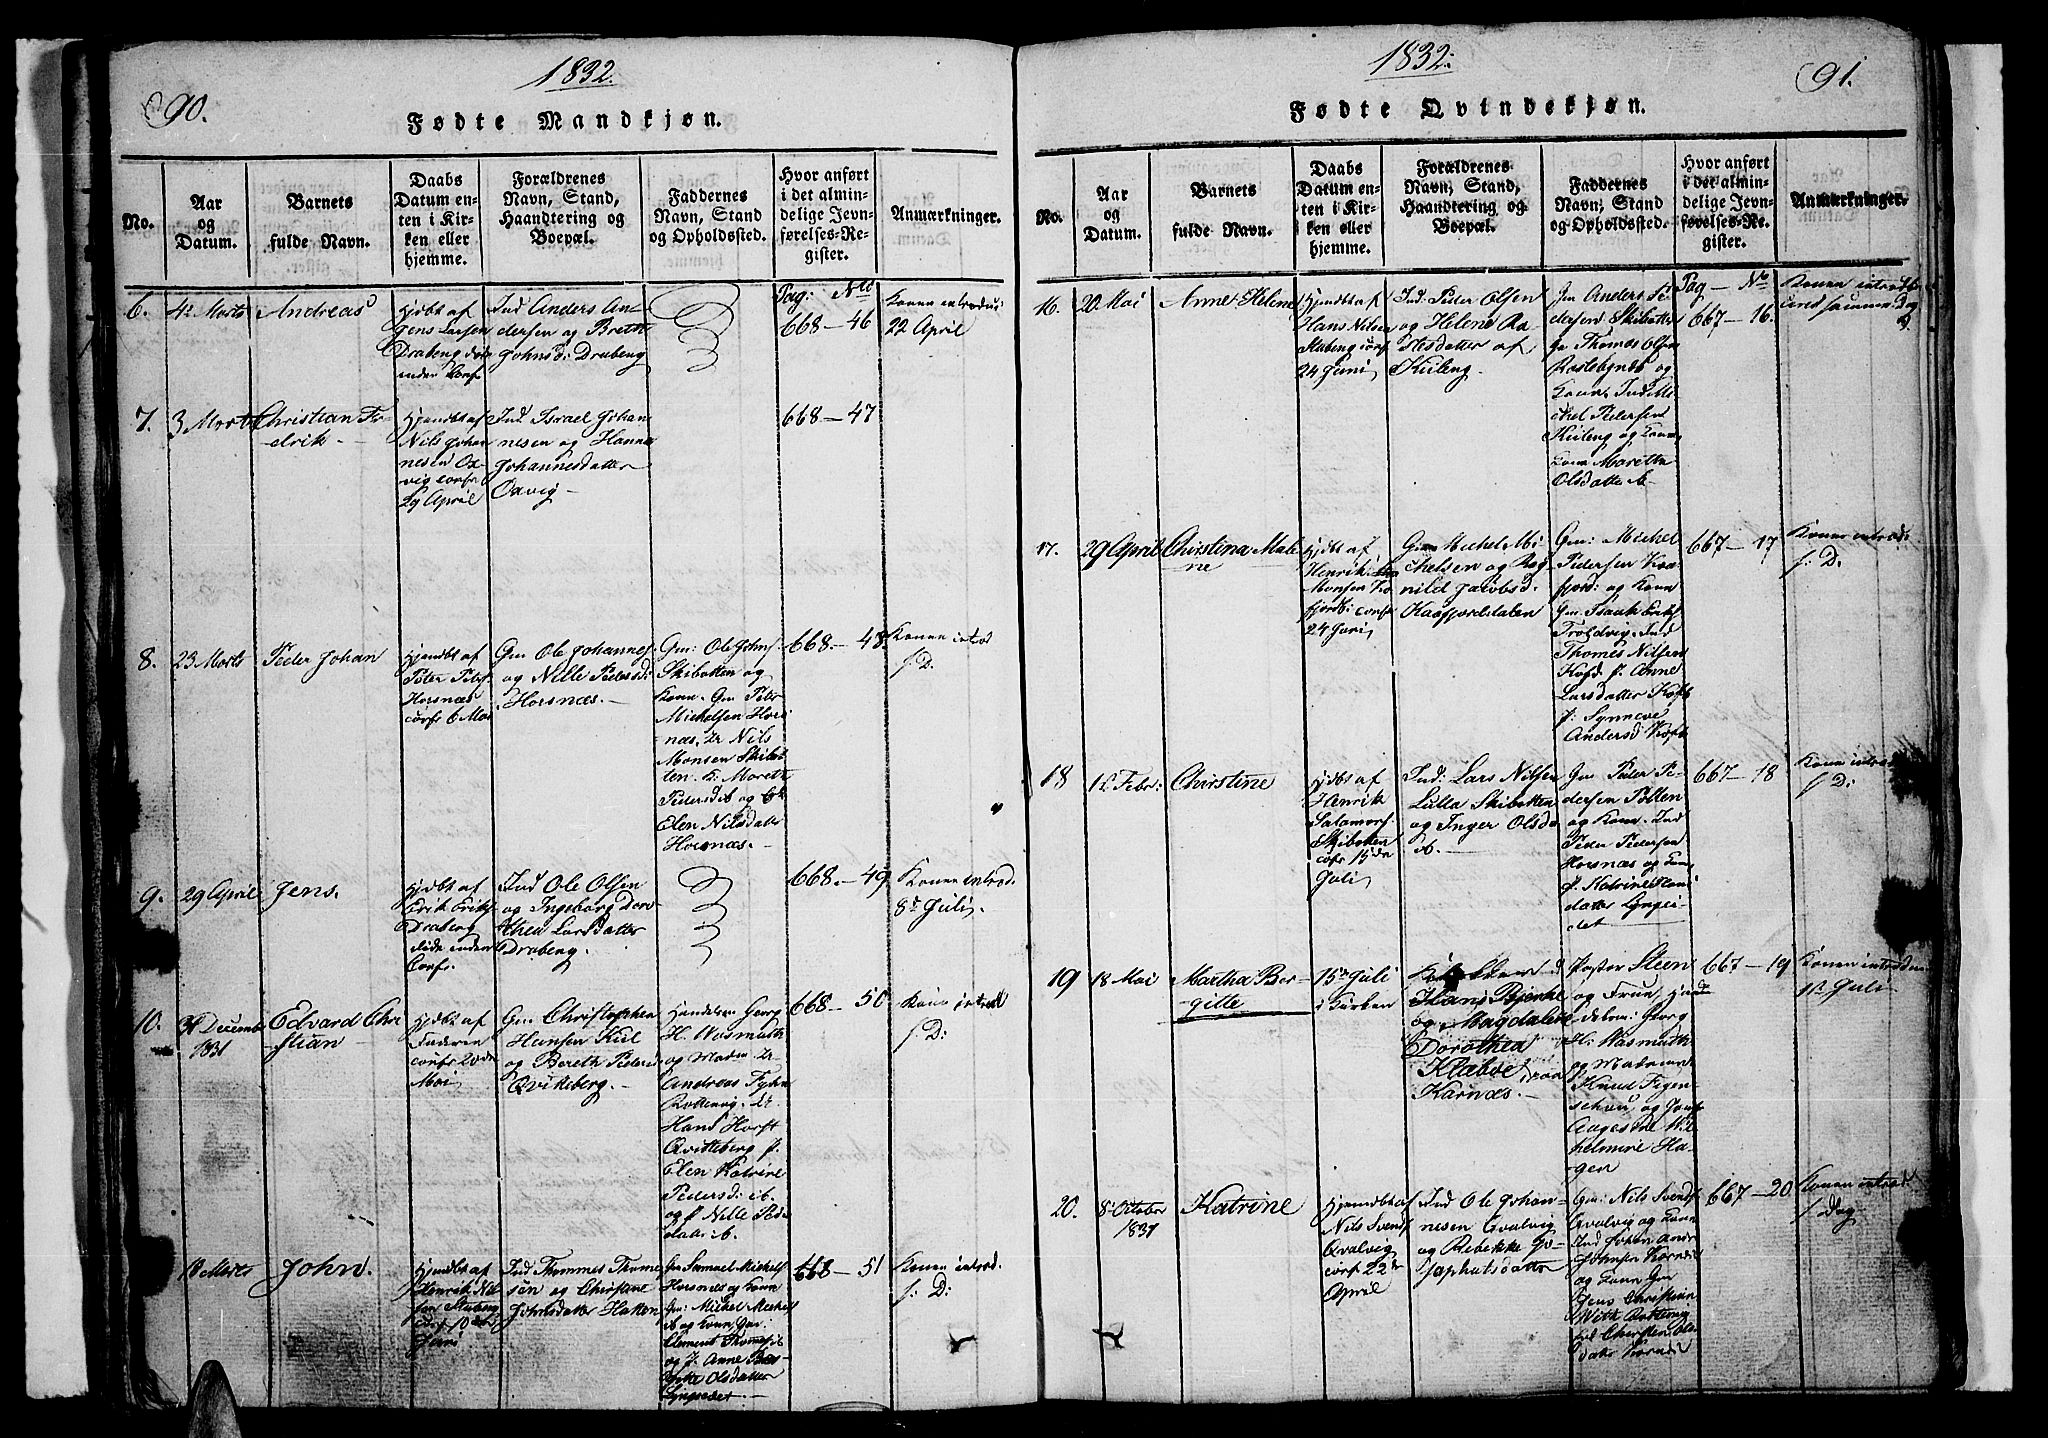 90.
1832.
Fødte Mandkjøn.
No.
Aar
og
Datum.
Barnets
fulde Navn.
Daabs
Datum en-
ten i Kir-
ken eller
hjemme.
Forældrenes
Navn, Stand,
Haandtering og
Boepæl.
Faddernes
Navn, Stand
og Opholdssted.
Hvor anført
i det almin-
delige Jevn-
førelses-Re-
gister.
Anmærkninger.
Pag: No
6.
Marts
Andreas
hjdbt af
Larsen
Drabeng
under Conf
Ind Anders An-
dersen og Breth
Johnsd: Drabeng
668 - 46
Konen introdus:
22 April
7.
3 Marts
Christian Fre-
drik -
hjemdbt af
Nils Johan
nesen Ox-
vig confr
29 April
Ind Israel Johan-
nesen og Hanna
Johannesdatter
Oxvig -
668 - 47
8.
23 Marts
Peder Johan
hjemdbt af
Peter Peters
Horsnæs
confr 6 Mai
Gm Ole Johannes
og Nille Pedersd:
Horsnæs. -
Gm: Ole Johns
Skibotten og
Kone. Gm Peter
Michelsen Hors
næs, Dr Nils
Monsen Skibo
ten. P: Moreth
Pedersd ib og
Elen Nilsdatter
Horsnæs. -
668. - 48.
Konen introd
s: D.
9.
29 April
Jens.
hjdbt af
Erik Eriks
Draberg
døde inden
Confr.
Ind Ole Olsen
og Ingeborg Doro
thea Larsdatter
Drabeng.
668. - 49
Konen introd.
8de Juli.
10.
31 Decemb
1831
Edvard Chri
stian
hjdbt af
Faderen
confr 20de
Mai
Gm Christopher
Hansen Kiil
og Bereth Pedersd
Qvikeberg. -
Handelsm Georg
H. Wasmuth
og Madm Dr
Andreas Fyhn
Rottenvig. Dr.
Hans Horst
Qvitteberg P.
Elen Katrine
Pedersd: ib.
og P Nille Peds
datt: ib.
668 - 50.
Kone introd
s: D:
18 Marts
John.
hjemdbt af
Henrik Nil
sen Stubeng
conf 10de
Juni
Ind Thommes Thome
sen og Christine
Johnsdatter Hatten
Gm Samuel Michels
Horsnæs og Kone
Gm: Michel Michels
ib og Kone, Gm:
Clement Thomes ib
og P. Anne
Olsdatter
Lyngseidet. -
668 - 51
Konen introd.
s: D:
1832.
91.
Fødte Qvindekjøn.
No.
Aar
og
Datum.
Barnets
fulde Navn.
Daabs
Datum en-
ten i Kir-
ken eller
hjemme.
Forældrenes
Navn, Stand,
Haandtering og
Boepæl.
Faddernes
Navn, Stand
og Opholdssted.
Hvor anført
i det almin-
delige Jevn-
førelses-Re-
gister.
Anmærkninger.
Pag - No
16.
20 Mai
Anne Helene
hjemdbt af
Hans Nilsen
Stubeng conf
24 Juni
Ind: Peder Olsen
og Helene Ra
datter af
Kiileng.
Gm Anders Pe
dersen Skibotten
Gm Thomas Olsen
og
Kone, Ind Mi
chel Pedersen
Kiileng og Kone
Maretha
Olsdatter
667 - 16.
Konen introds
samme Dag
17.
29 April
Christina Male
ne
hjdbt af
Henrik
Monsen Ko
fjord: confr
24 Juni
Gm Michel Mi
chelsen og Rag
nild Jacobsd:
Kaafjorddalen
Gm: Michel
Pedersen Kaa
fjord: og Kone
Gm: Isaak Eriks
Troldvig. Ind
Thomes Nilsen
Kofd P. Anne
Larsdatter Kofd
P: Synneve
Andersd Kofd
667 - 17
Konen introd:
s: D.
18
1ste Febr:
Christine
hjdbt af
Henrik
Salamons
Skibotten
confr 15de
Juli
Ind: Lars Nilsen
Lulla Skibotten
og Inger Olsd
ib. -
Gm Peder Pe-
dersen Pollen
og Kone. Ind
Peder Pedersen
Horsnæs og Kone
P. Katrine
datter Lyngsei
det
667 - 18
Konen introd
s: D:
19
18 Mai
Martha Ber-
gitte
15de Juli
i Kirken
Hans Bjenke
og Magdalene
Dorothea
Klæboe
Karnæs. -
Pastor Steen
og Frue, Han
delsm: Georg
H: Wasmuth
og Madame
Knud Figen-
schou, og Jomf
Aagesine Wil
helmine Ha-
gen
667 - 19
Konen introdu
1ste Juli
20.
8 October
1831
Katrine
hjemdbt af
Nils Svends
Qvalvig
confr 22de
April
Ind Ole Johan-
nesen Qvalvig
og Rebekke Jo-
saphatsdatter
Gm: Nils Svends
Qvalvig og Kone
Ind Johan Andr
Johnsen Kornæs
og Kone Gm
Jens Christian
With
Christen Ols
datter Kornæs
667 - 20
Konen introd
s Dag